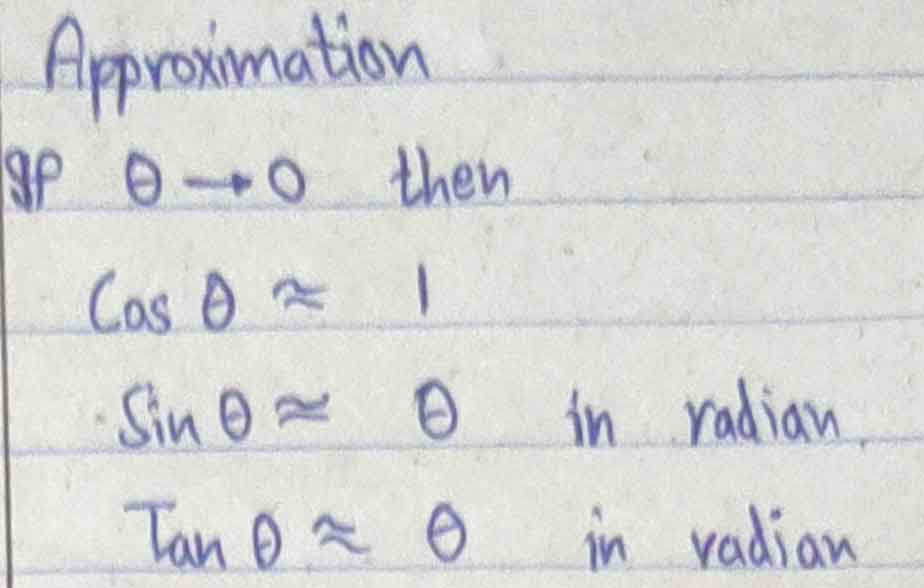 Approximation
If θ → 0 then
Cos θ ≈ 1
Sin θ ≈ θ in radian
Tan θ ≈ θ in radian